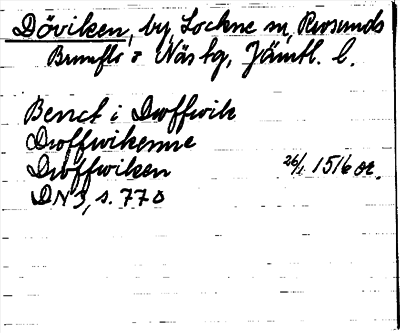 Döviken, by Lockne sn, Revsunds
Brunflo o Näs tg, Jämtl. l.
Benct i Doffwik
Doffwikenne
Doffwiken 26/1 1516 or.
DN 3, s. 770